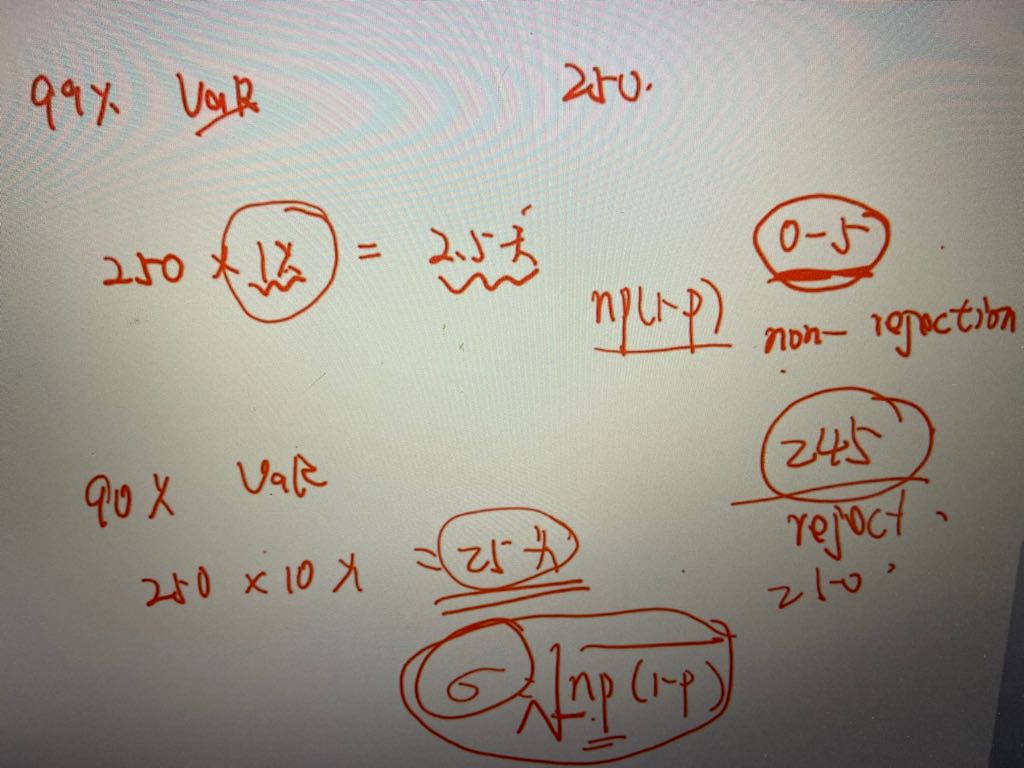 99% VaR 250.
250 × 1% = 2.5天
0-5
np(1-p) non-rejection
245
reject.
90% VaR
250 × 10% = 25天
210
σ = √np(1-p)